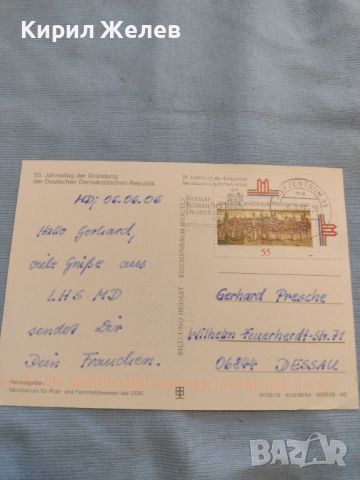 Кирил Желев
35. Jahrestag der Gründung
der Deutschen Demokratischen Republik
Md, 06.06.06
Hallo Gerhard,
viele Grüße aus
LHS MD
sendet Dir
Dein Frauchen.
Herausgeber:
Ministerium für Post- und Fernmeldewesen der DDR
BILD UND HEIMAT · REICHENBACH (VOGTL)
55
Gerhard Presche
Wilhelm-Feuerherdt-Str. 71
06844 DESSAU
bazar.bg